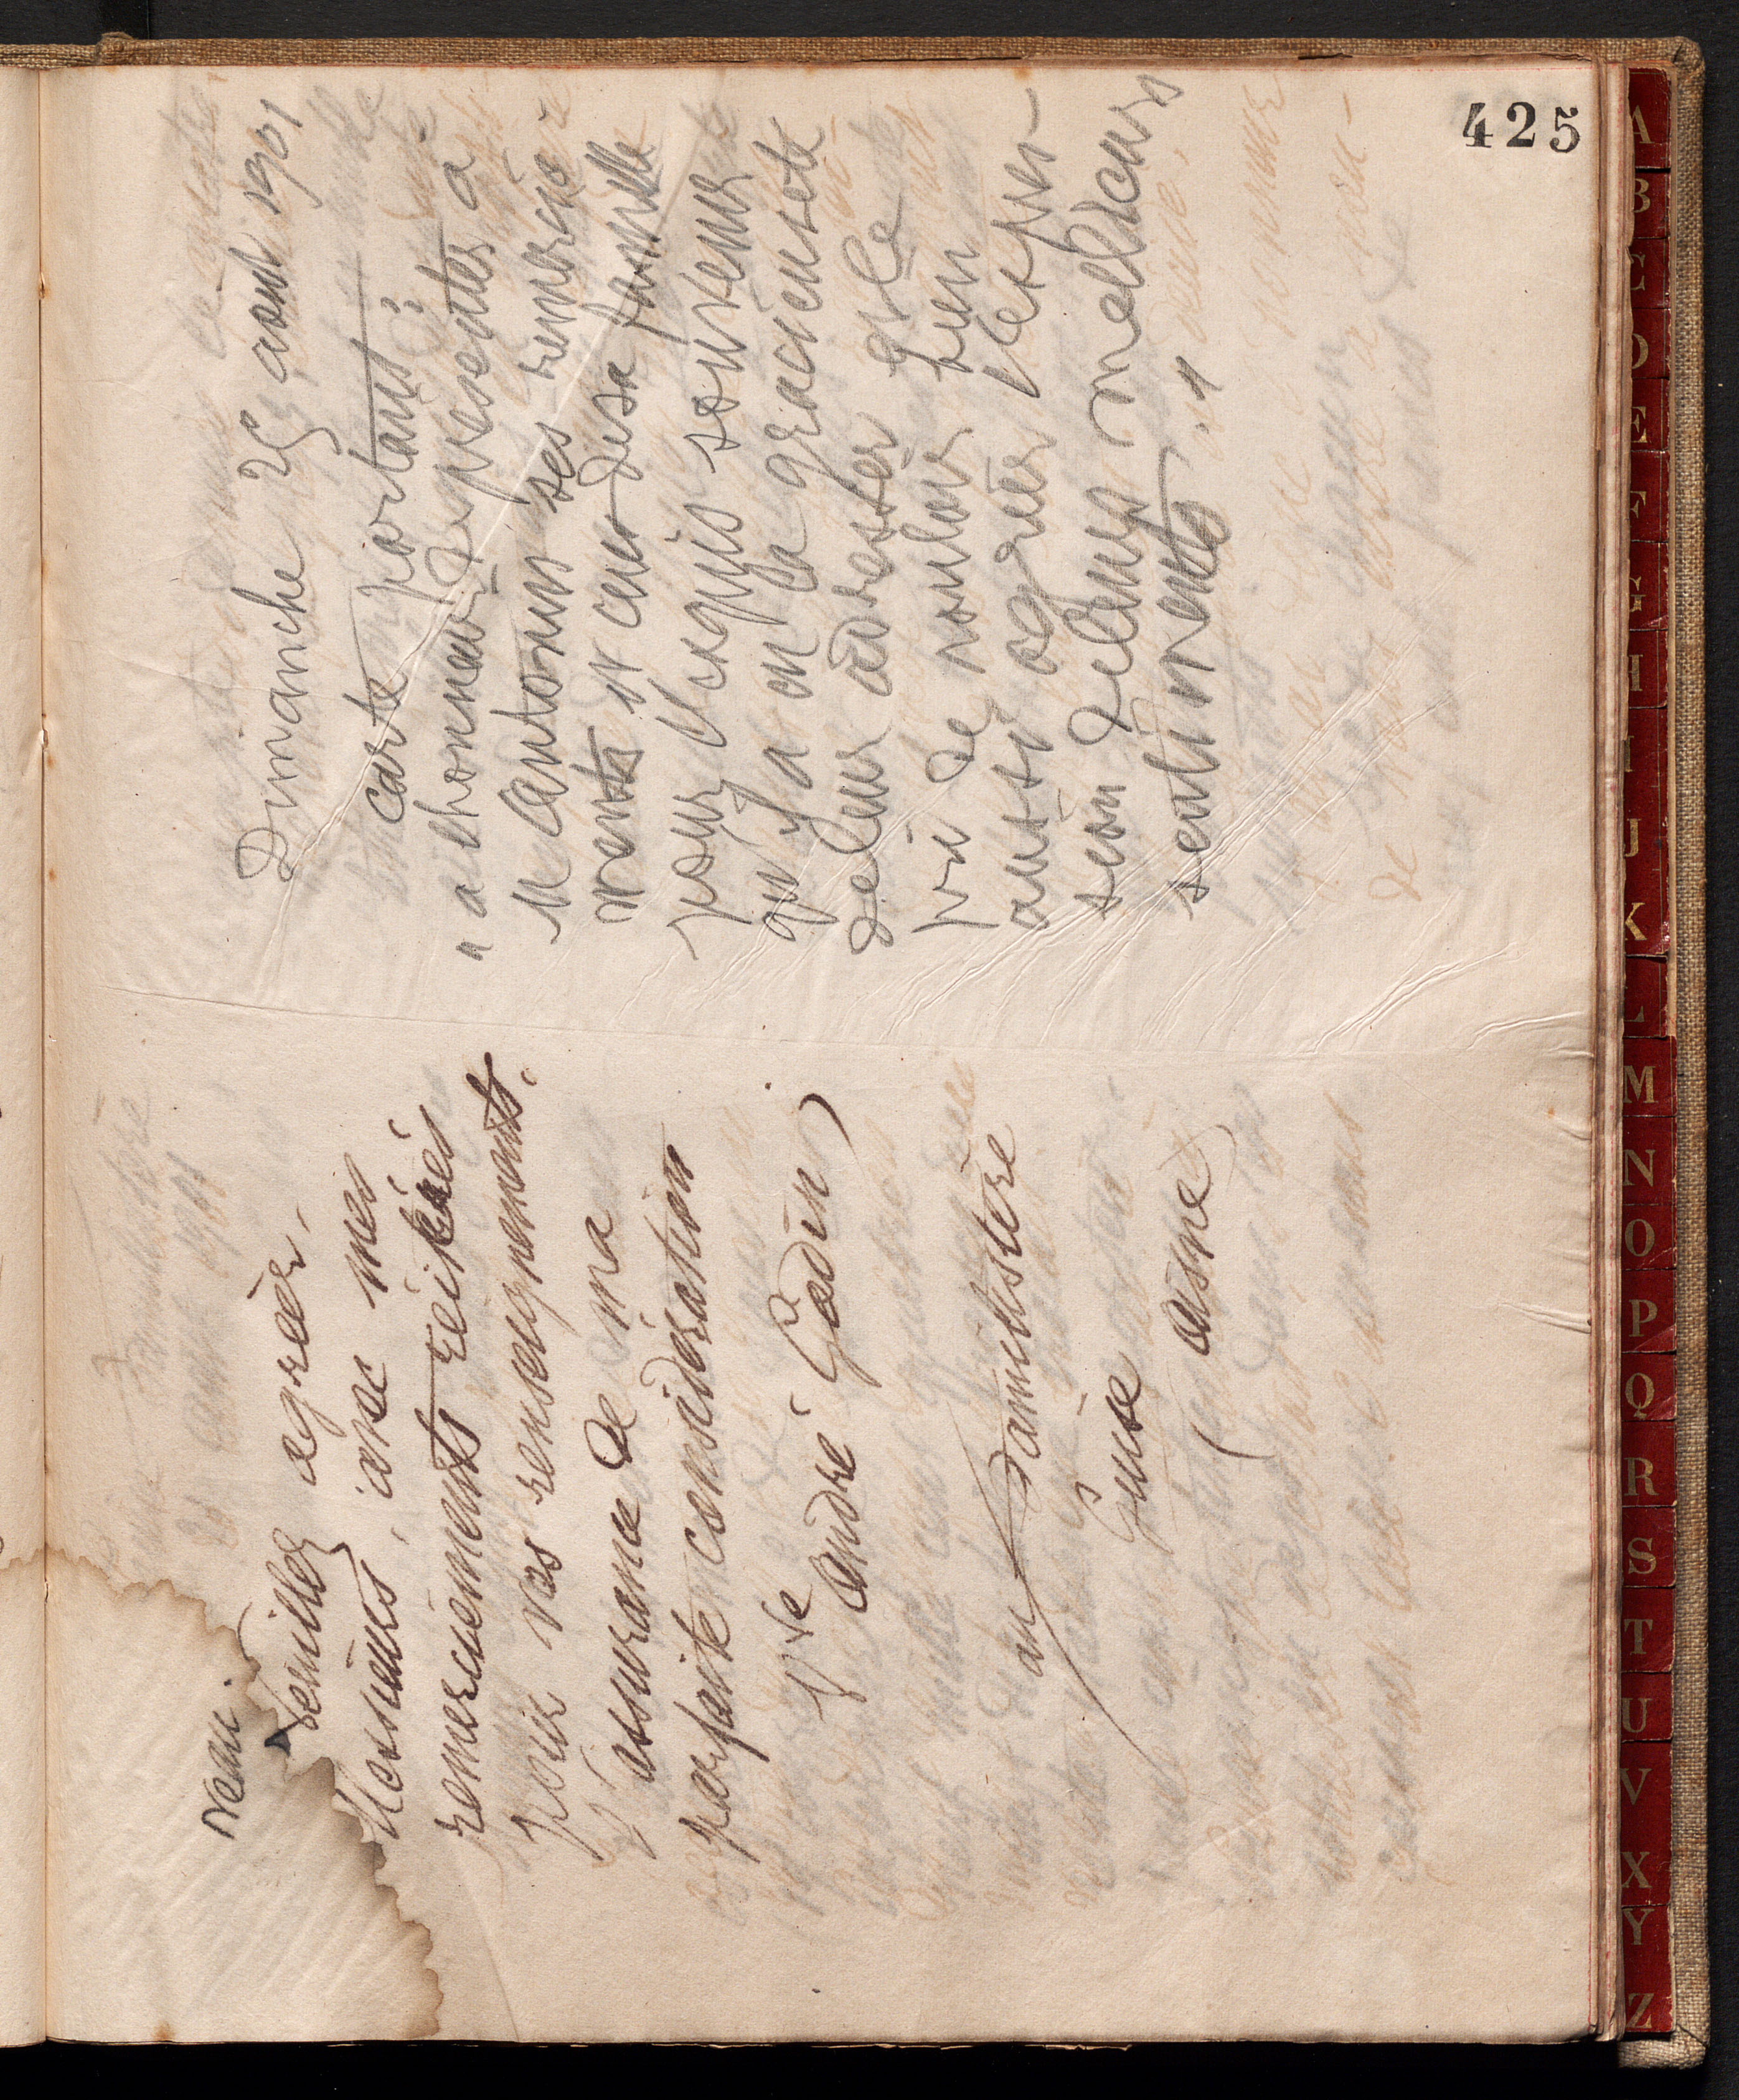 425
reau.
Veuillez agréer,
Messieurs, avec mes
remerciements réitérés
pour vos renseignements.
l'assurance de ma
parfaite considération
Vve André Godin
au Familistère
Guise
Aisne
Dimanche 25 aout 1901
carte portant :
"a l'honneur de présenter à
M Antonin ses remercie
ments et ceux de sa famille
pour l'exquis souvenir
qu'il a eu la gracieuseté
de leur adresser Elle
prie de vouloir bien
aussi agréer l'expres-
sion de leurs meilleurs
sentiments "
A
B
C
D
E
F
G
H
I
J
K
L
M
N
O
P
Q
R
S
T
U
V
X
Y
Z